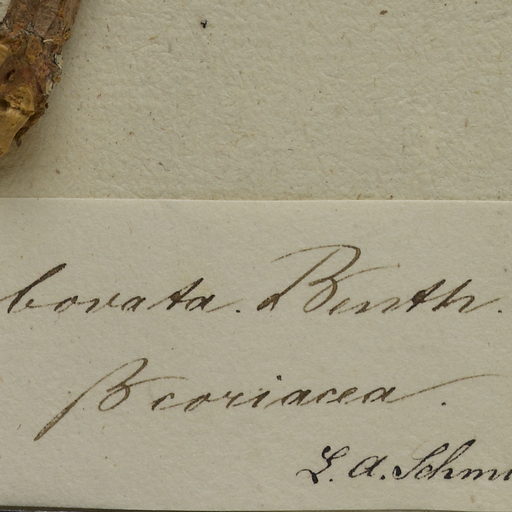 bovata. Benth.
β coriacea.
L. A. Schmi